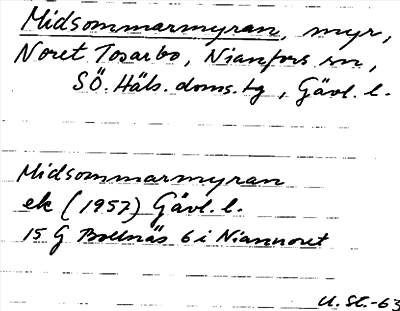 Midsommarmyran, myr,
Noret Tosarbo, Nianfors sn,
SÖ. Häls. doms.tg, Gävl. l.
Midsommarmyran
ek (1957) Gävl. l.
15 G Bollnäs 6 i Niannoret
U. St.-63